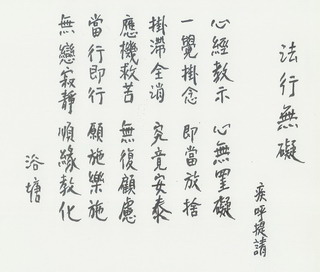 法行無礙
疾呼提請
心經教示 心無罣礙
一覺掛念 即當放捨
掛滯全消 究竟安泰
應機救苦 無復顧慮
當行即行 願施樂施
無戀寂靜 順緣教化
浴塘